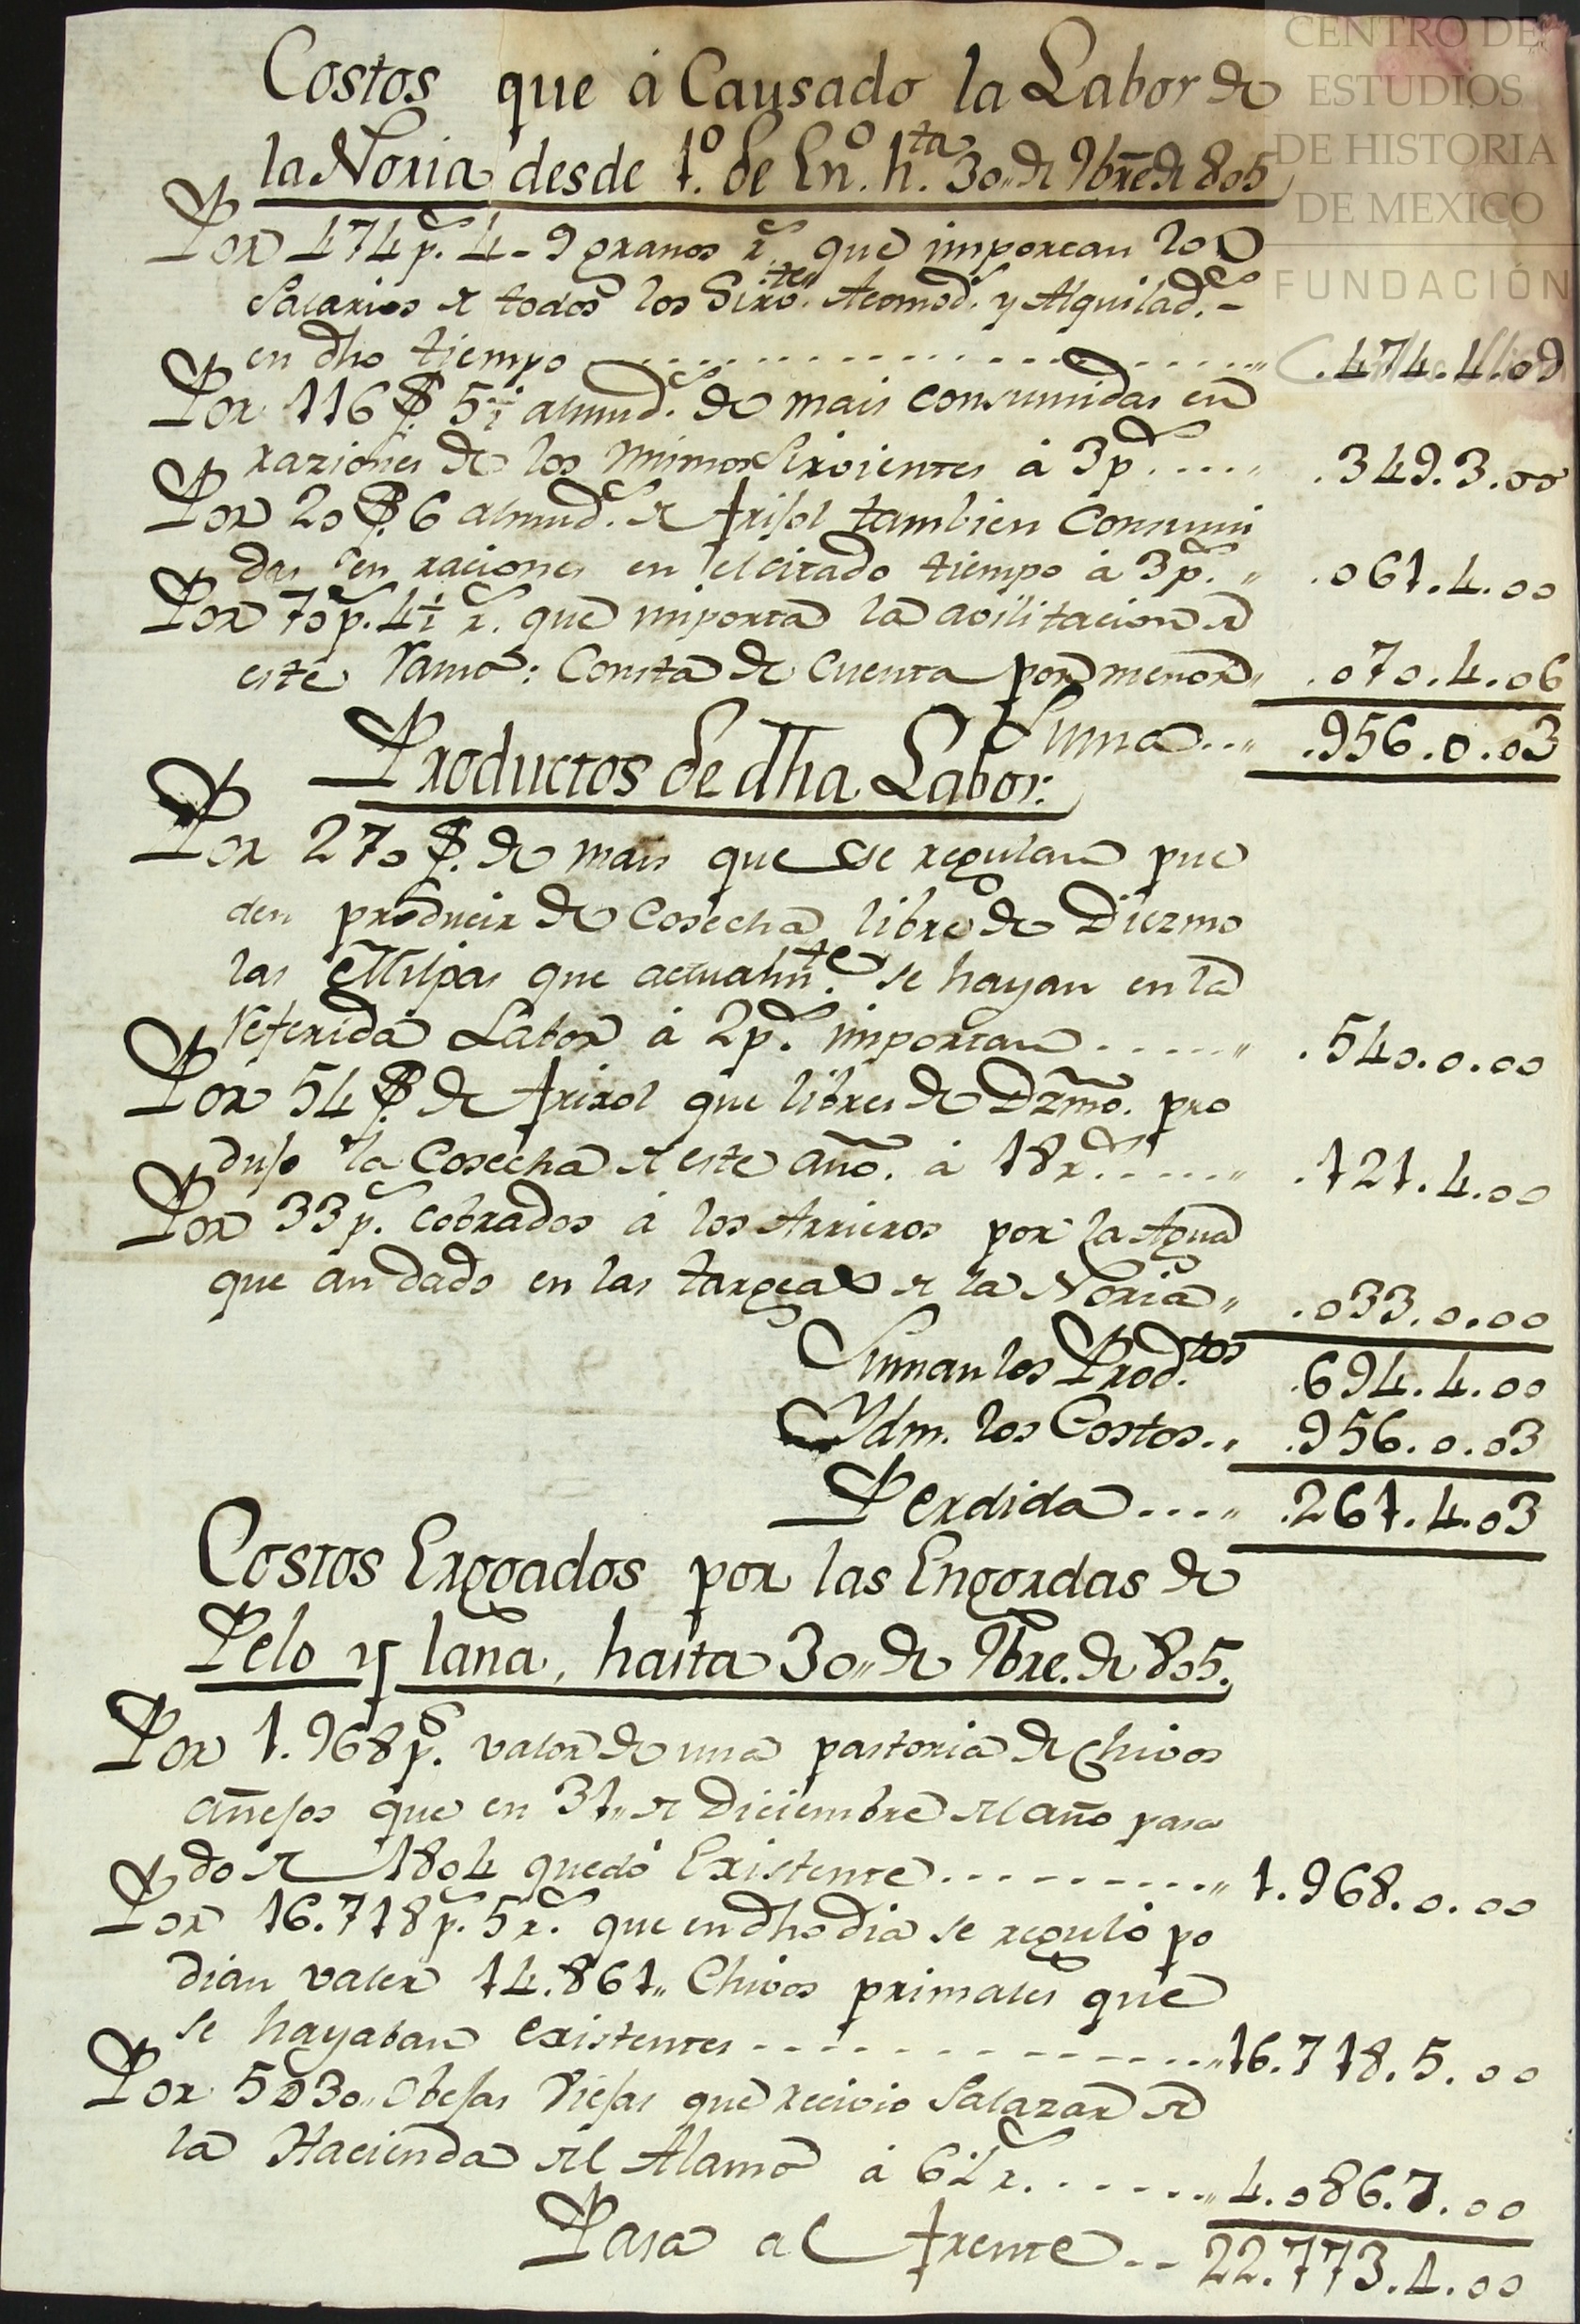 CENTRO DE
ESTUDIOS
DE HISTORIA
DE MEXICO
FUNDACIÓN
Costos que á Causado la Labor de
la Noria desde 1º. de Enº. hta. 30,, de 9bre de 805
Por 474 ps. 4 - 9 granos rs. que importan los
Salarios de todos los Sirvtes. Acomods. y Alquilads.
en dho tiempo .474.4.09
Por 116 f. 5½ almuds. de mais consumidas en
raziones de los mimos Sirvientes á 3 ps. .349.3.00
Por 20 f. 6 almuds. de frisol tambien Consumi
das en raciones en el citado tiempo á 3 ps. .061.4.00
Por 70 ps. 4½ rs. que importa la avilitacion de
este Ramo: Consta de Cuenta por menor .070.4.06
Suma .956.0.03
Productos de dha Labor.
Por 270 f. de mais que se regulan pue
den producir de Cosecha libre de Diezmo
las Milpas que actualmte. se hayan en la
referida Labor á 2 ps. importan .540.0.00
Por 54 f. de frixol que libres de Dzmo. pro
dujo la Cosecha de este año. á 18 rs. .121.4.00
Por 33 ps. cobrados á los Arrieros por la Agua
que an dado en las targeas de la Noria .033.0.00
Suman los Prodtos .694.4.00
Ydm. los Costos .956.0.03
Perdida .261.4.03
Costos Erogados por las Engordas de
Pelo y lana, hasta 30,, de 9bre. de 805.
Por 1.968 ps. valor de una pastoria de Chivos
añejos que en 31,, de Diciembre del año pasa
do de 1804 quedó Existente 1.968.0.00
Por 16.718 ps. 5 rs. que en dho dia se reguló po
dian valer 14.861,, Chivos primales que
se hayaban existentes 16.718.5.00
Por 5030,, Obejas Viejas que recivio Salazar de
la Hacienda del Alamo á 6½ rs. 4.086.7.00
Pasa al frente 22.773.4.00